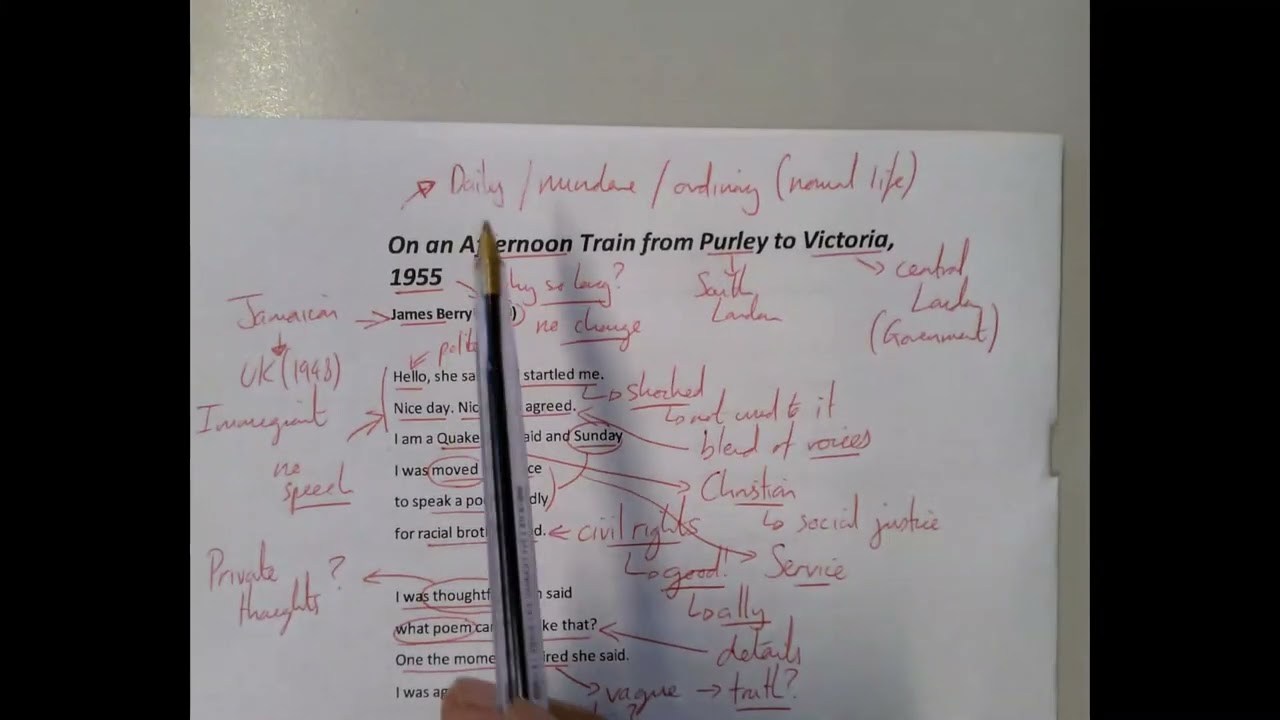 Daily / mundane / ordinary (normal life)
On an Afternoon Train from Purley to Victoria,
1955
why so long?
South
London
central
London
(Government)
Jamaican
James Berry
no change
UK (1948)
Hello, she sa startled me.
shocked
not used to it
Nice day. Nic agreed.
Immigrant
blend of voices
I am a Quake aid and Sunday
no
speech
I was moved ce
Christian
to speak a po dly
social justice
for racial brot d.
civil rights
good!
Service
Private
thoughts ?
ally
I was thoughtf n said
what poem ca ke that?
details
One the mome ired she said.
vague → truth?
I was ag